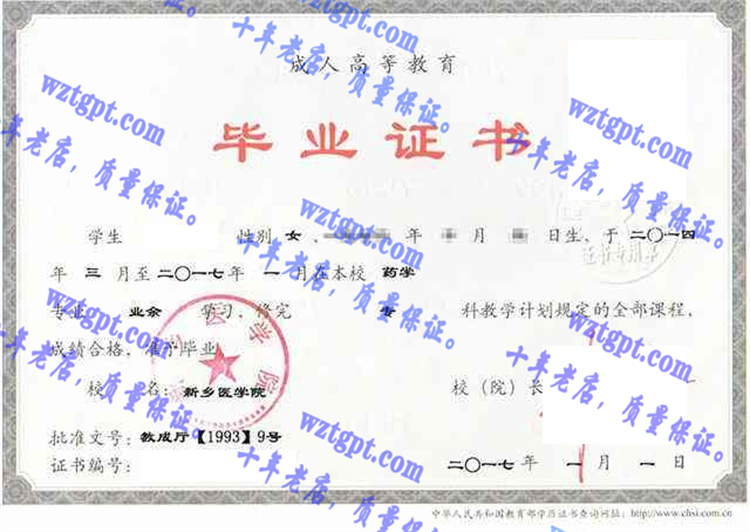 成人高等教育
毕业证书
学生 性别 女 、 年 月 日生、于 二〇一四
年 三 月至 二〇一七年 一 月在本校 药学
专业 业余 学习，修完 专 科教学计划规定的全部课程，
成绩合格，准予毕业
校 名：新乡医学院 校（院）长
批准文号：教成厅【1993】9号
证书编号： 二〇一七年 一 月 一 日
中华人民共和国教育部学历证书查询网址：http://www.chsi.com.cn
wztgpt.com
十年老店，质量保证。
wztgpt.com
十年老店，质量保证。
wztgpt.com
十年老店，质量保证。
wztgpt.com
十年老店，质量保证。
wztgpt.com
十年老店，质量保证。
wztgpt.com
十年老店，质量保证。
wztgpt.com
十年老店，质量保证。
wztgpt.com
十年老店，质量保证。
wztgpt.com
十年老店，质量保证。